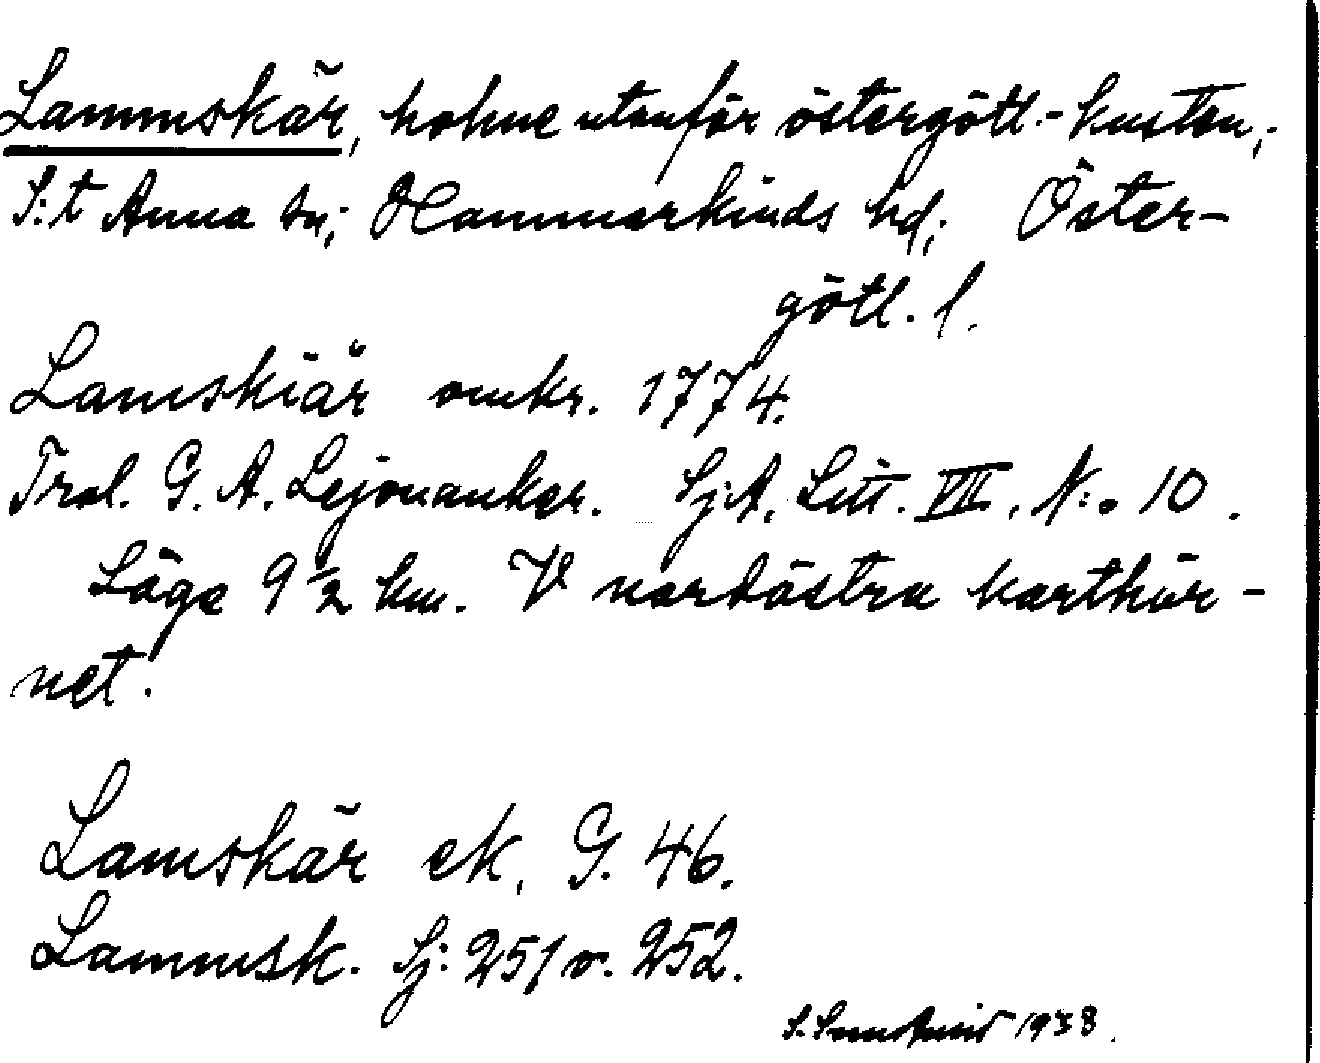 Lammskär, holme utanför östergötl.-kusten,
S:t Anna sn; Hammarkinds hd; Öster-
götl. l.
Lamskiär omkr. 1774.
Trol. G. A. Lejonanker. Sj.A. Litt. VII. N:o 10.
Läge 9 1/2 km. V nordöstra karthör-
net.
Lamskär ek. G. 46.
Lammsk. Sj: 251 o. 252.
S. 1938.